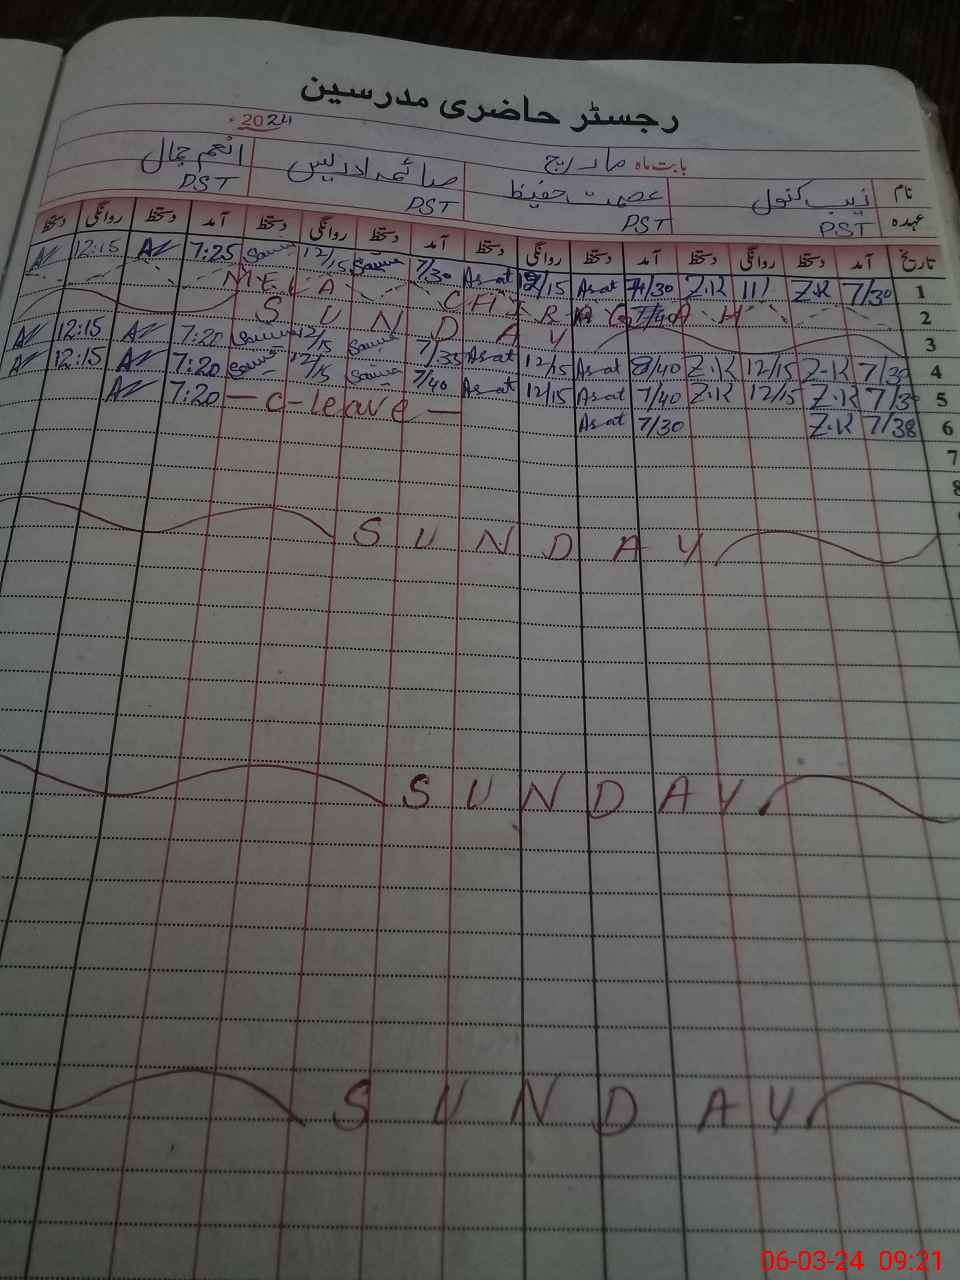 رجسٹر حاضری مدرسین
بابت ماہ مارچ 2024
نام زیب کنول عصمت حفیظ صائمہ ادریس انعم جمال
عہدہ PST PST PST PST
تاریخ آمد دستخط روانگی دستخط آمد دستخط روانگی دستخط آمد دستخط روانگی دستخط آمد دستخط روانگی دستخط
1 7/30 Z.K Z.K 7/30 As-at As-at 7/30 Saima 12/15 Saima 7:25 AZ 12:15 AZ
2 MELA CHIRAGAH
3 SUNDAY
4 7/30 Z-K 12/15 Z.K 8/40 As-at 12/15 As-at 7/35 Saima 12/15 Saima 7:20 AZ 12:15 AZ
5 7/30 Z.K 12/15 Z.K 7/40 As-at 12/15 As-at 7/40 Saima 12/15 Saima 7:20 AZ 12:15 AZ
6 7/38 Z.K 7/30 As-at — C-leave — 7:20 AZ
7
8
SUNDAY
SUNDAY
SUNDAY
06-03-24 09:21